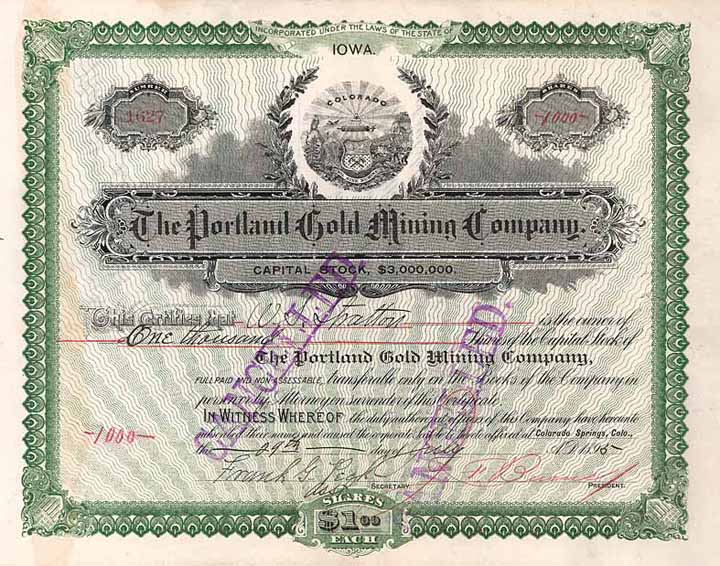 INCORPORATED UNDER THE LAWS OF THE STATE OF
IOWA.
NUMBER
1627
COLORADO
SHARES
-1000-
The Portland Gold Mining Company.
CAPITAL STOCK, $3,000,000.
This Certifies that W. S. Stratton is the owner of
One thousand Shares of the Capital Stock of
The Portland Gold Mining Company,
FULL PAID AND NON ASSESSABLE, transferable only on the Books of the Company in
person or by Attorney on surrender of this Certificate.
IN WITNESS WHEREOF the duly authorized officers of this Company have hereunto
subscribed their names and caused the corporate Seal to be hereto affixed at Colorado Springs, Colo.,
-1000-
this 29th day of July A.D. 1895
Frank G. Peck
SECRETARY.
PRESIDENT.
CANCELLED.
CANCELLED.
SHARES
$1.00
EACH